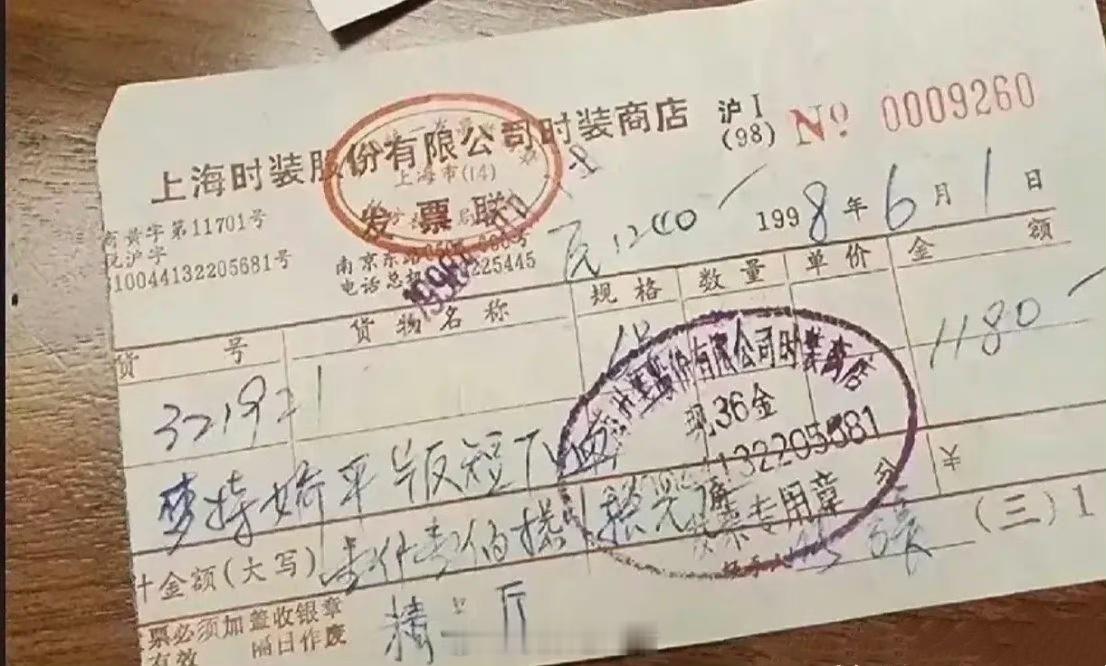 上海时装股份有限公司时装商店 沪I
(98) No 0009260
上海市(14)
发票联
商黄字第11701号
税沪字
310044132205681号
南京东路
电话总机 225445
1998年6月1日
货号 货物名称 规格 数量 单价 金额
321921 1180
梦特娇平版短T恤
计金额(大写) 壹仟壹佰捌拾 元 ¥
股份有限公司时装商店
现36金
发票专用章
(三)1
票必须加盖收银章
有效 隔日作废
精 厅